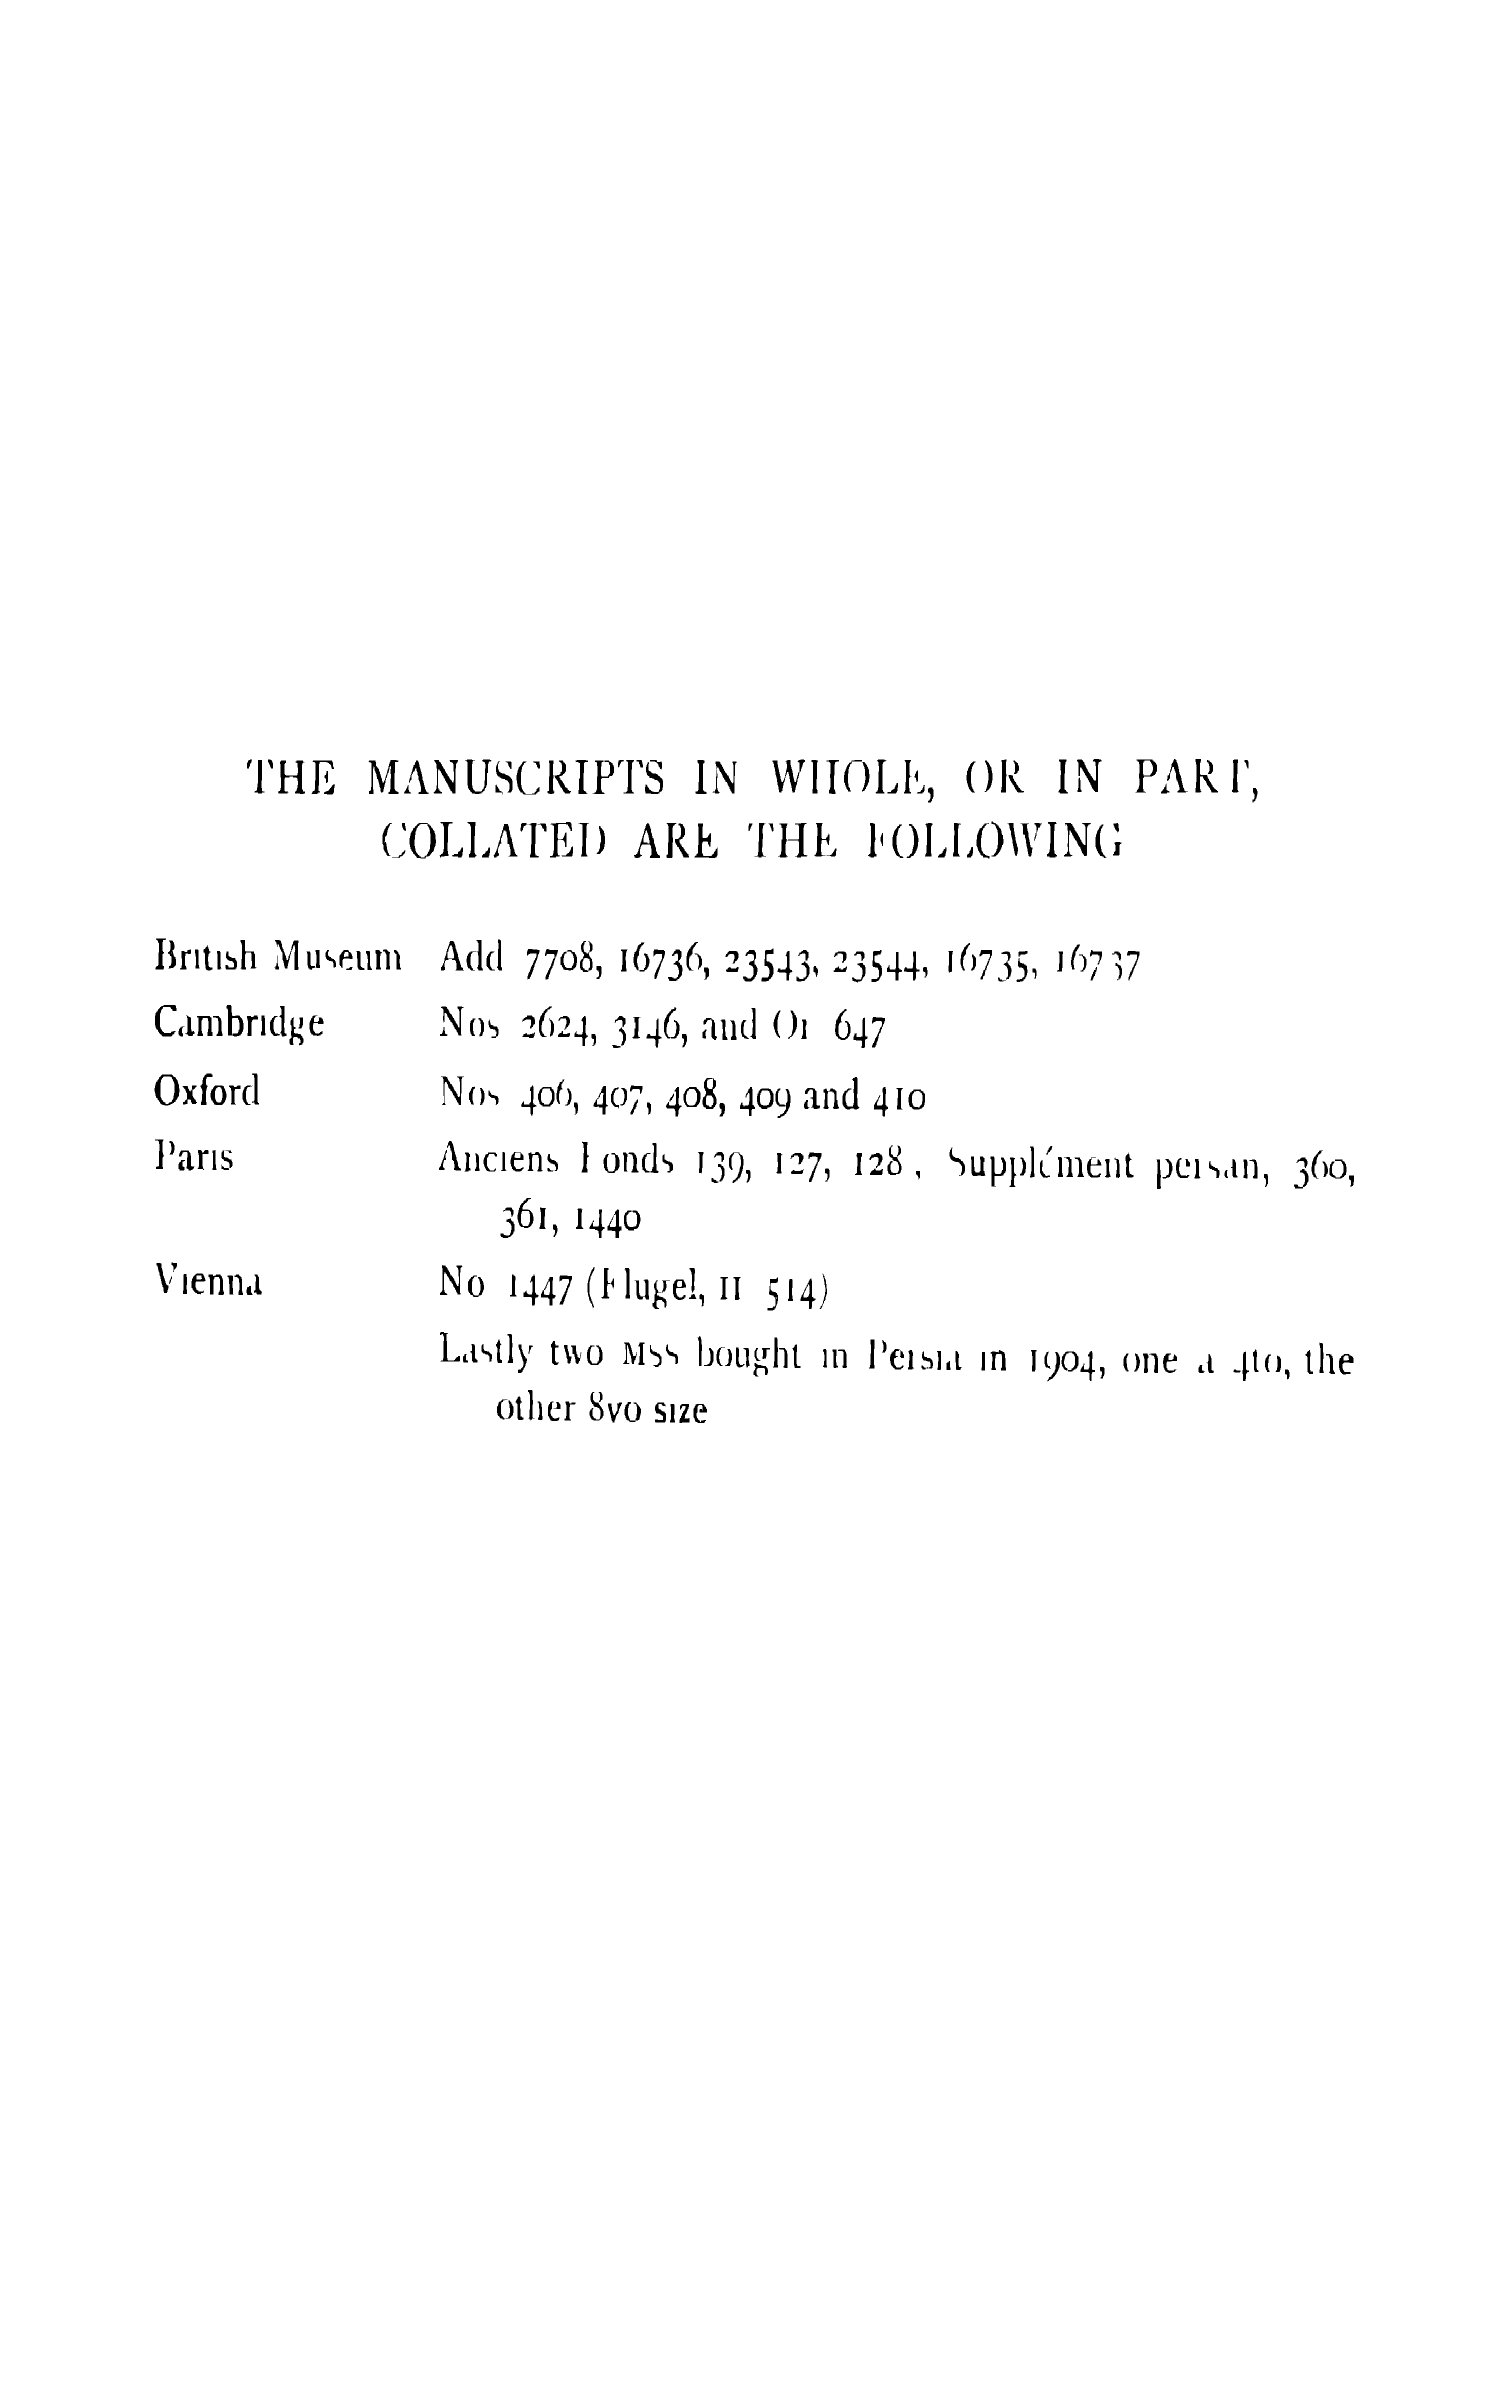 THE MANUSCRIPTS IN WHOLE, OR IN PART,
COLLATED ARE THE FOLLOWING
British Museum Add 7708, 16736, 23543, 23544, 16735, 16737
Cambridge Nos 2624, 3146, and Or 647
Oxford Nos 406, 407, 408, 409 and 410
Paris Anciens Fonds 139, 127, 128, Supplément persan, 360,
361, 1440
Vienna No 1447 (Flugel, II 514)
Lastly two MSS bought in Persia in 1904, one a 4to, the
other 8vo size